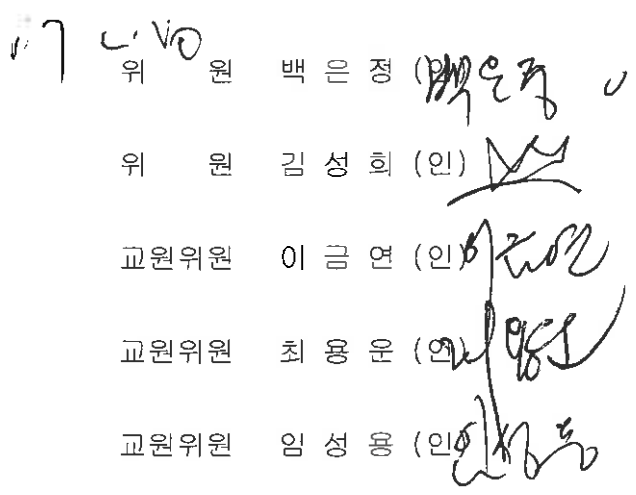 위 원 백 은 정 (인) 백은정
위 원 김 성 희 (인)
교원위원 이 금 연 (인) 이금연
교원위원 최 용 운 (인)
교원위원 임 성 용 (인)